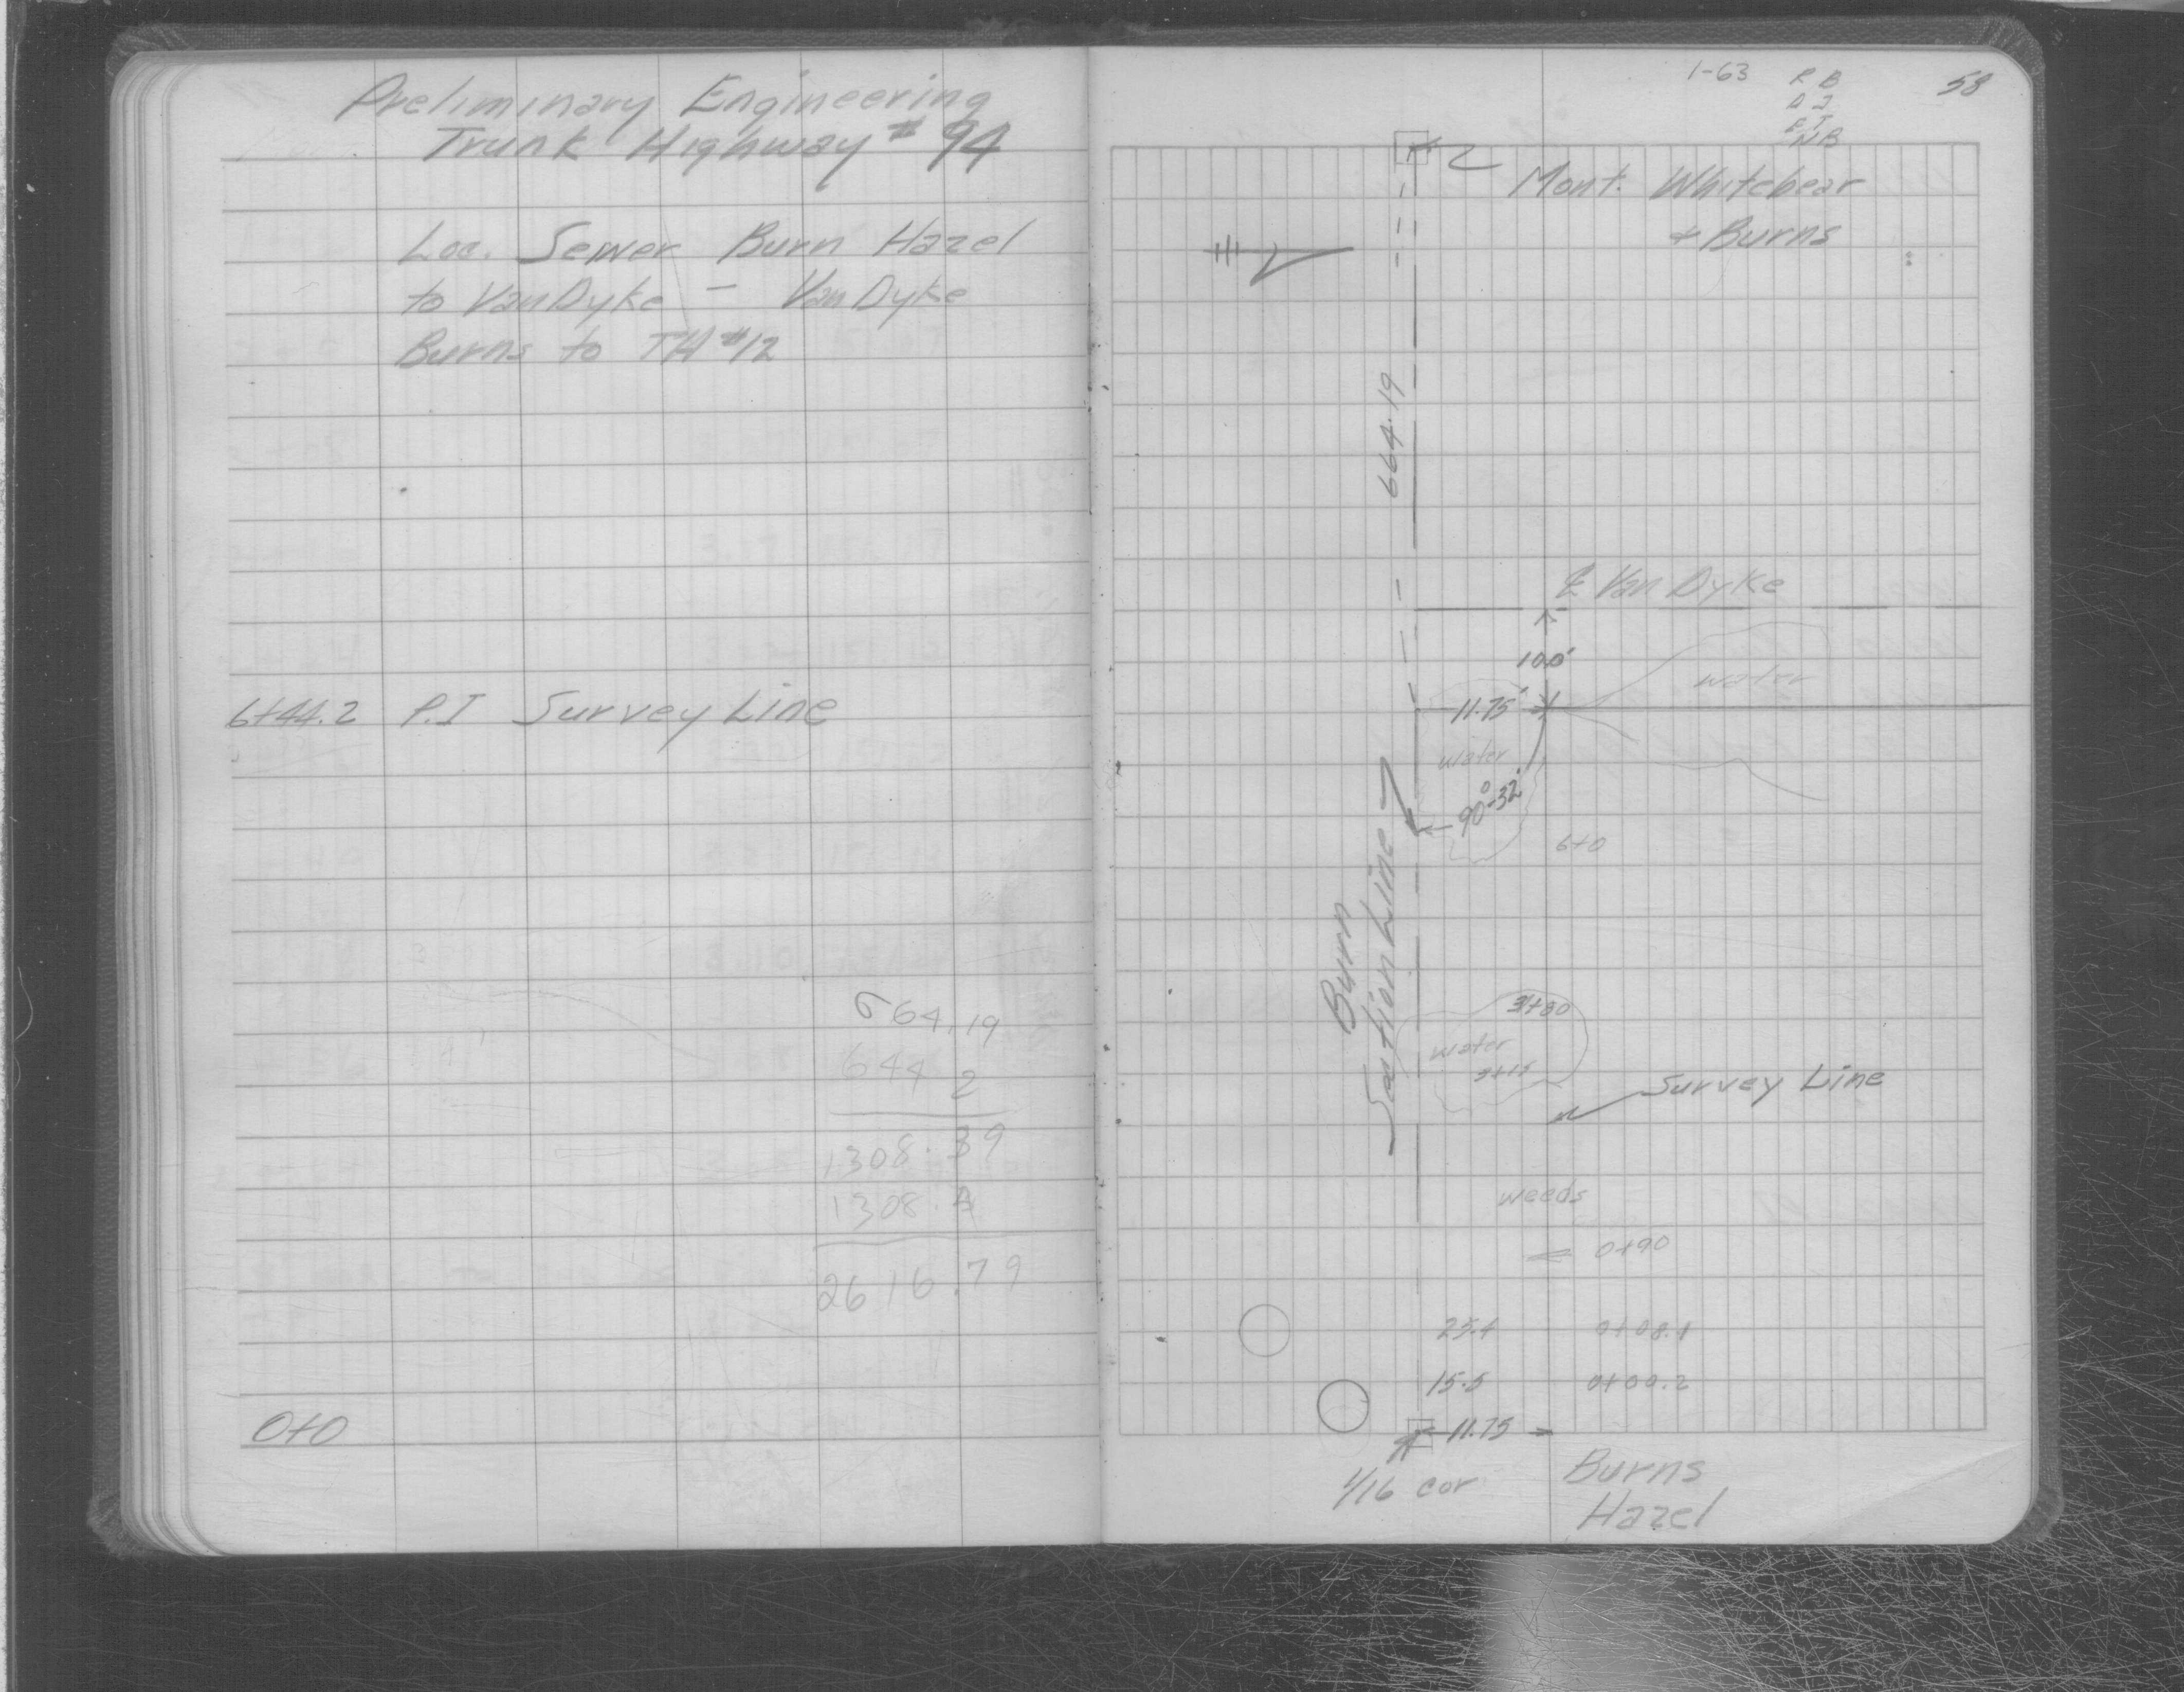 Preliminary Engineering
Trunk Highway # 94
Loc. Sewer Burn Hazel
to VanDyke — VanDyke
Burns to TH #12
6+44.2 P.I Survey Line
664.19
644 2
1308.39
1308.4
2616.79
0+0
1-63
58
R B
A J
E T
N B
Mont. Whitebear
+ Burns
664.19
℄ Van Dyke
water
11.75'
water
90°-32'
6+0
Burn
Section Line
3+80
water
3+15
Survey Line
weeds
0+90
25.4 0+08.1
15.5 0+00.2
11.75
1/16 cor
Burns
Hazel